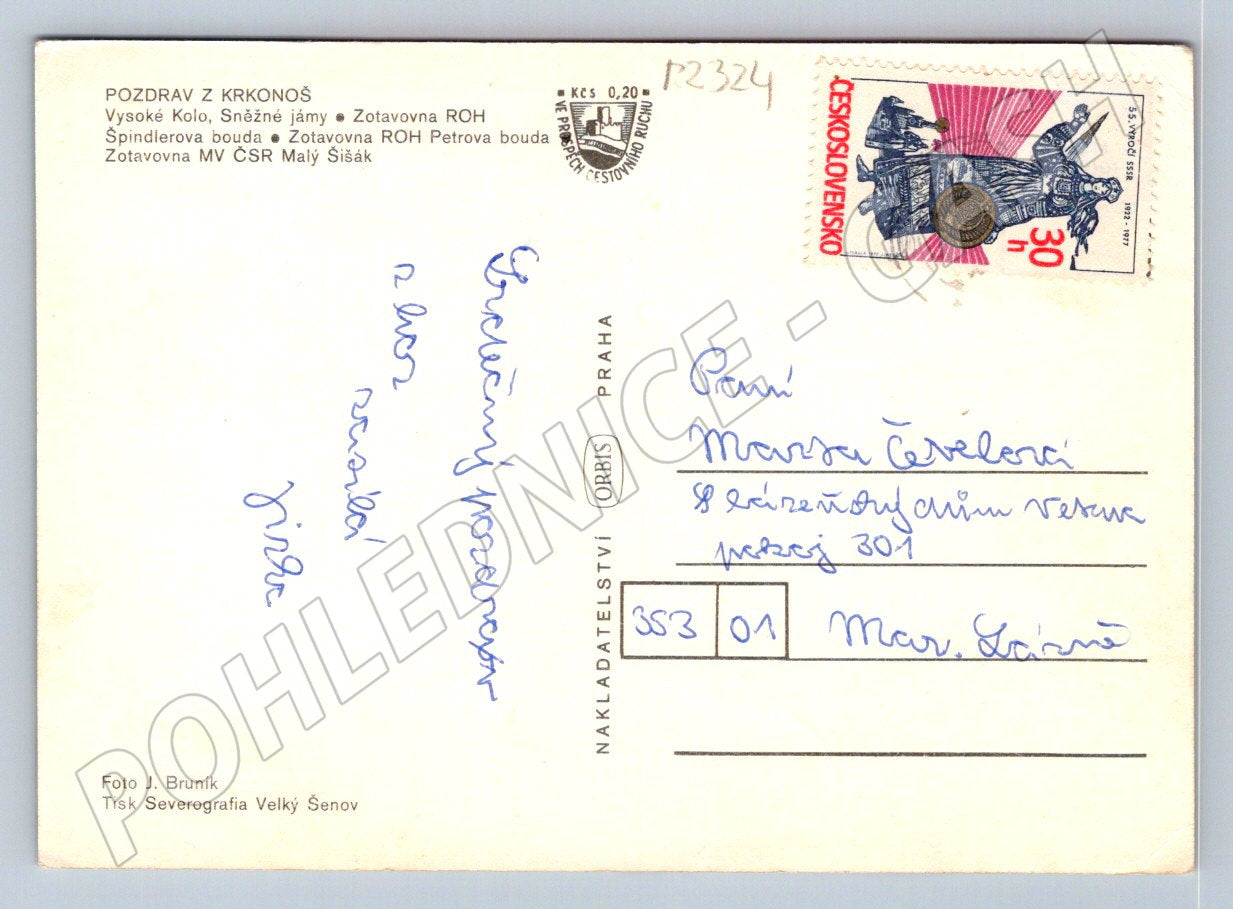 POZDRAV Z KRKONOŠ
Vysoké Kolo, Sněžné jámy ● Zotavovna ROH
Špindlerova bouda ● Zotavovna ROH Petrova bouda
Zotavovna MV ČSR Malý Šišák
Kčs 0,20
VE PROSPĚCH CESTOVNÍHO RUCHU
r2324
ČESKOSLOVENSKO
30 h
55. VÝROČÍ SSSR 1922 - 1977
Srdečný pozdrav
z hor
zasílá
Jirka
NAKLADATELSTVÍ ORBIS PRAHA
Paní
Marta
lázeňský dům Vesna
pokoj 301
353 01 Mar. Lázně
Foto J. Bruník
Tisk Severografia Velký Šenov
POHLEDNICE